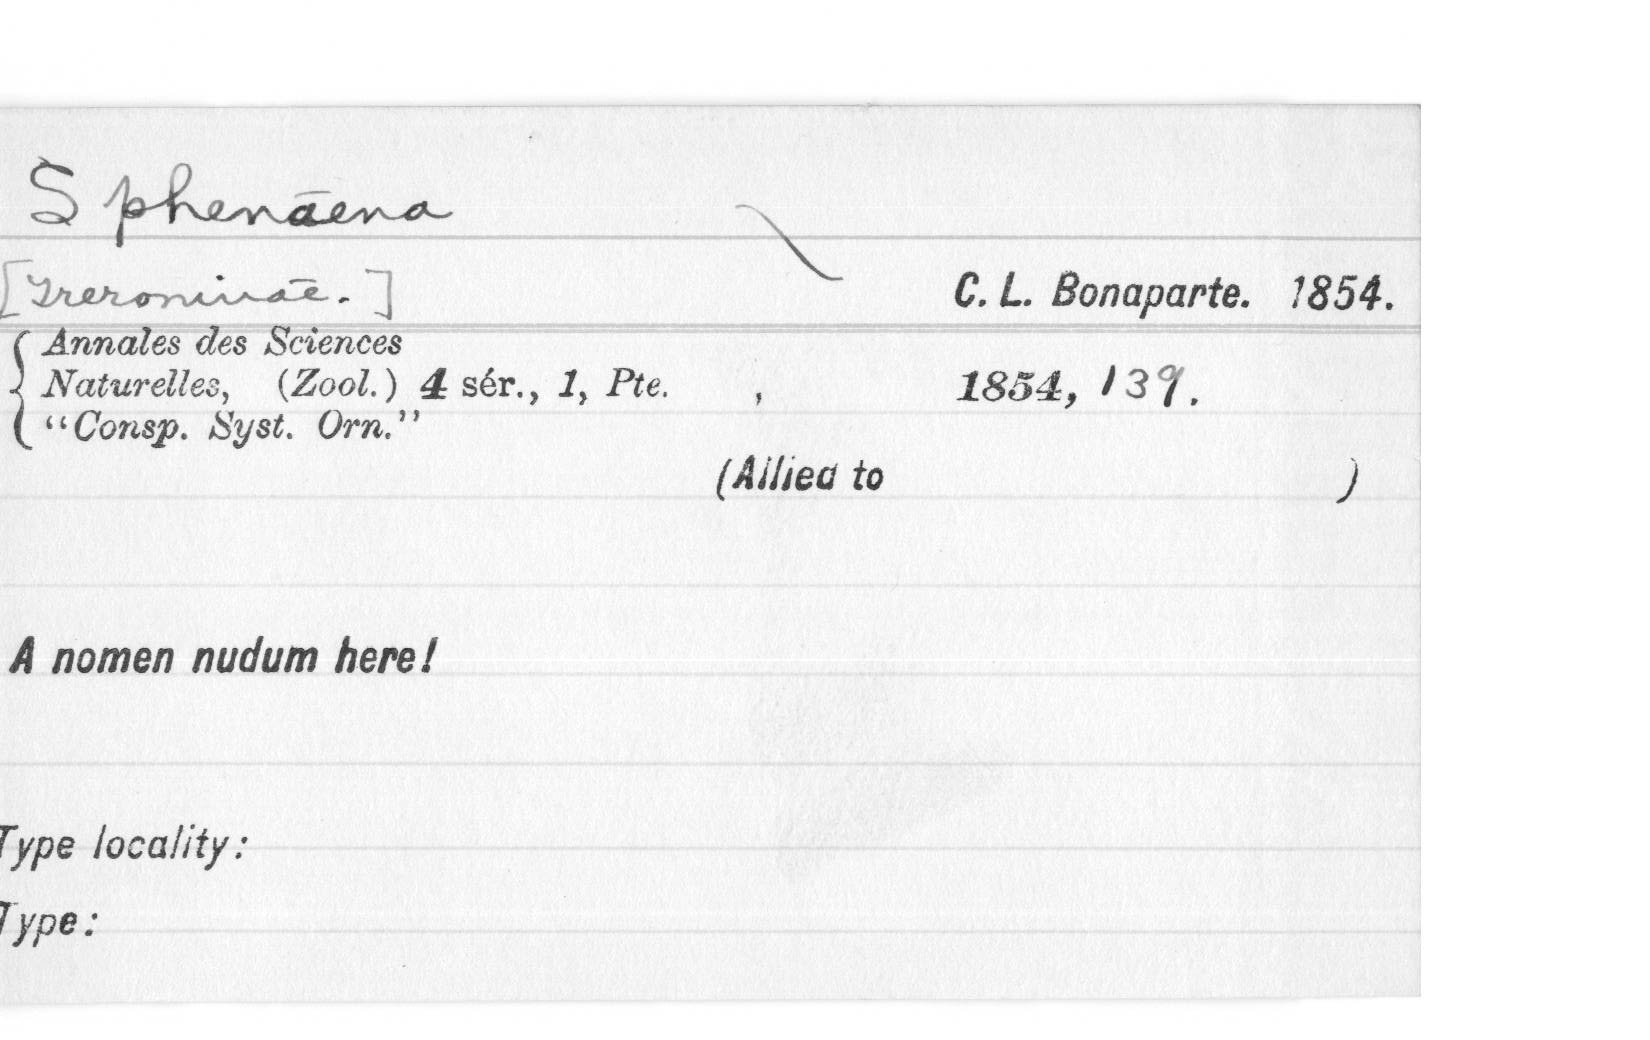 Sphenāena
[Treronināe.]
C. L. Bonaparte. 1854.
Annales des Sciences
Naturelles, (Zool.) 4 sér., 1, Pte. , 1854, 139.
"Consp. Syst. Orn."
(Allied to )
A nomen nudum here!
Type locality:
Type: